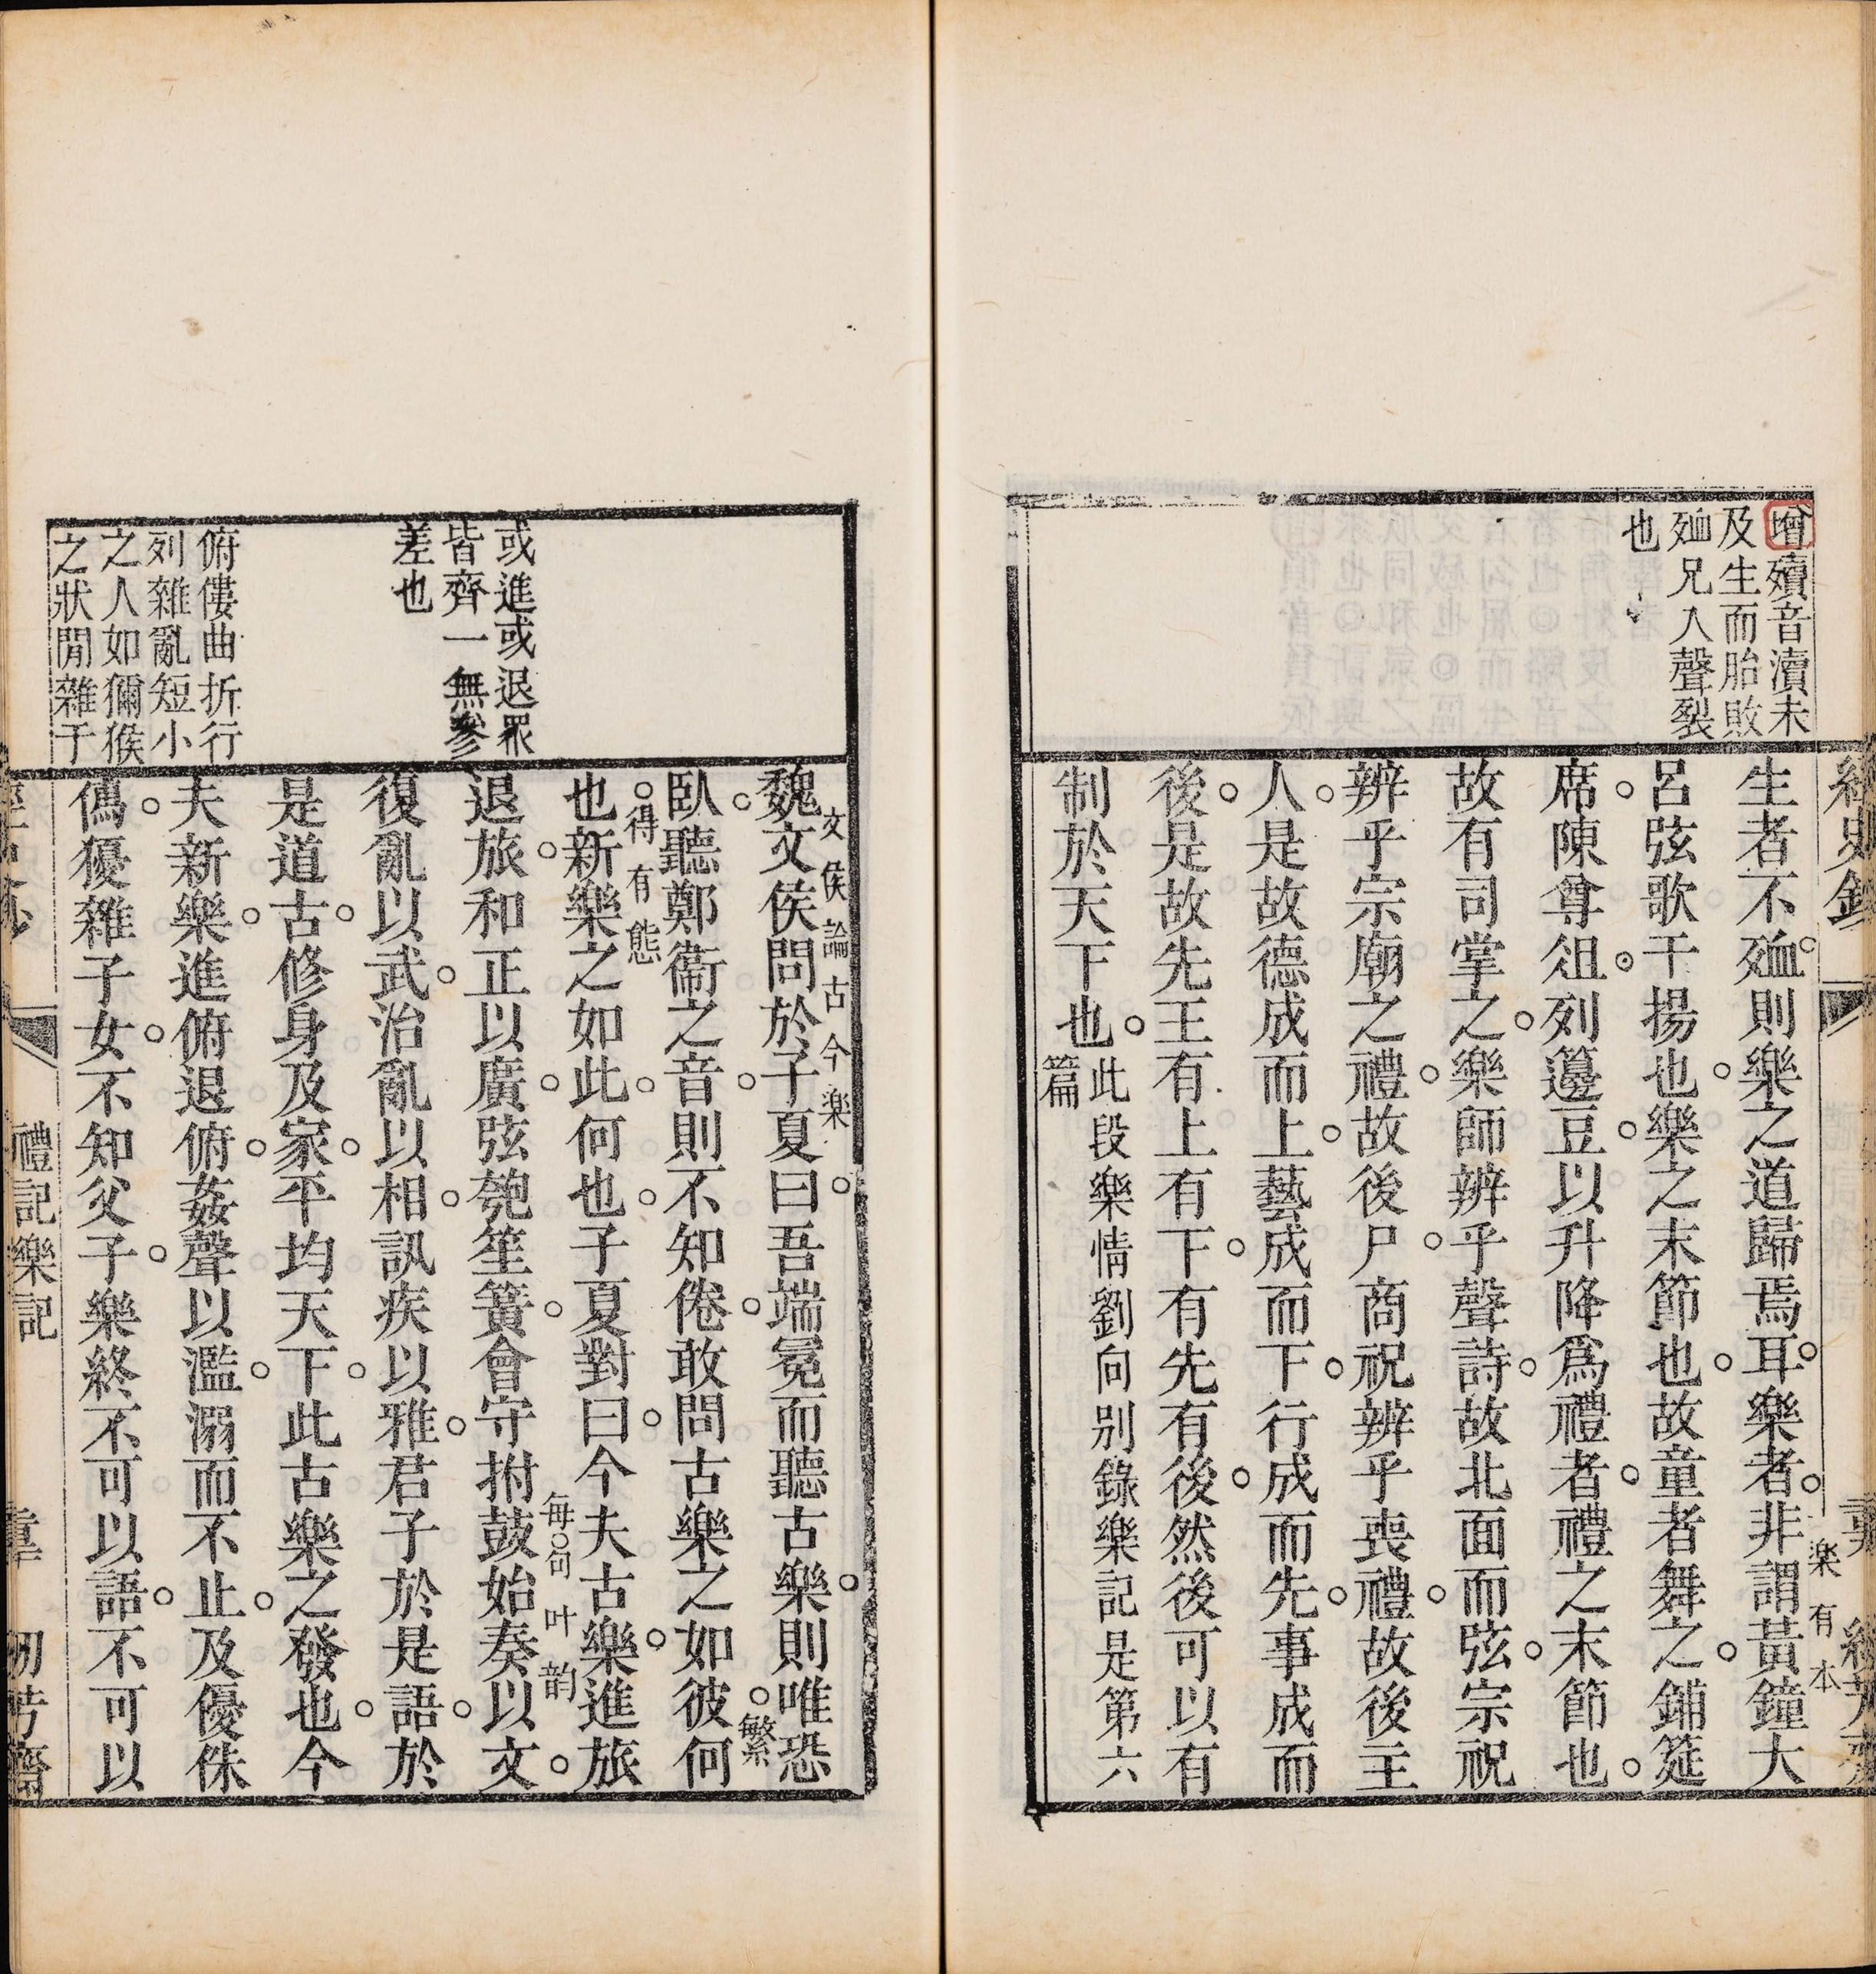 增殰音瀆未
及生而胎敗
殈兄入聲裂
也
生者不殈則樂之道歸焉耳樂者非謂黃鐘大
樂有本
呂弦歌干揚也樂之末節也故童者舞之鋪筵
席陳尊俎列籩豆以升降爲禮者禮之末節也
故有司掌之樂師辨乎聲詩故北面而弦宗祝
辨乎宗廟之禮故後尸商祝辨乎喪禮故後主
人是故德成而上藝成而下行成而先事成而
後是故先王有上有下有先有後然後可以有
制於天下也此段樂情劉向別錄樂記是第六
篇
或進或退衆
皆齊一無參
差也
俯僂曲折行
列雜亂短小
之人如獼猴
之狀閒雜于
文侯論古今樂
魏文侯問於子夏曰吾端冕而聽古樂則唯恐
臥聽鄭衞之音則不知倦敢問古樂之如彼何
繁
得有態
也新樂之如此何也子夏對曰今夫古樂進旅
每句叶韵
退旅和正以廣弦匏笙簧會守拊鼓始奏以文
復亂以武治亂以相訊疾以雅君子於是語於
是道古修身及家平均天下此古樂之發也今
夫新樂進俯退俯姦聲以濫溺而不止及優侏
儒獶雜子女不知父子樂終不可以語不可以
禮記樂記